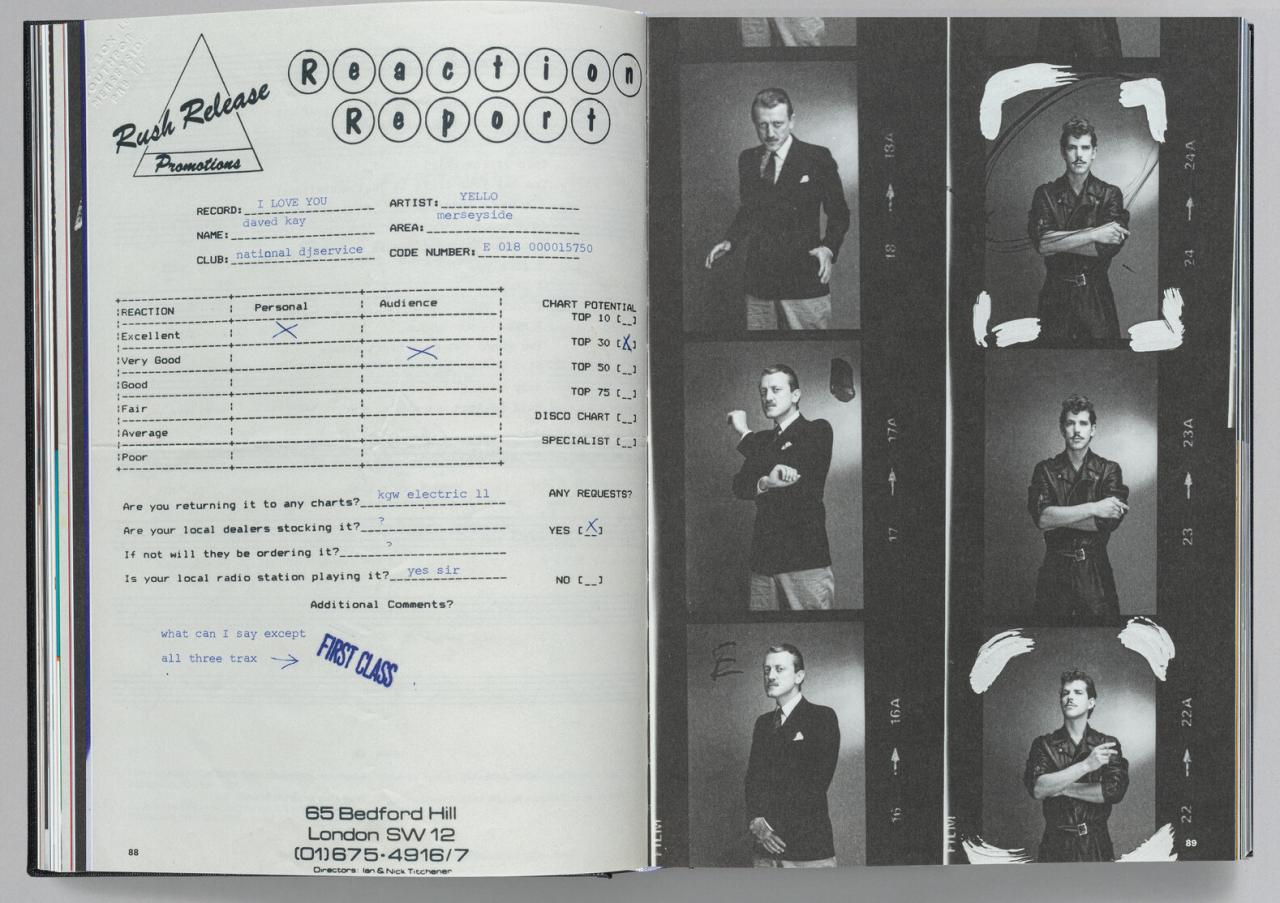 Rush Release
Promotions
Reaction
Report
RECORD: I LOVE YOU
ARTIST: YELLO
NAME: daved kay
AREA: merseyside
CLUB: national djservice
CODE NUMBER: E 018 000015750
REACTION Personal Audience
Excellent X
Very Good X
Good
Fair
Average
Poor
CHART POTENTIAL
TOP 10 [__]
TOP 30 [X]
TOP 50 [__]
TOP 75 [__]
DISCO CHART [__]
SPECIALIST [__]
Are you returning it to any charts? kgw electric 11
Are your local dealers stocking it? ?
If not will they be ordering it? ?
Is your local radio station playing it? yes sir
ANY REQUESTS?
YES [X]
NO [__]
Additional Comments?
what can I say except
all three trax → FIRST CLASS
65 Bedford Hill
London SW 12
(01)675-4916/7
Directors: Ian & Nick Titchener
88
18A
18
17A
17
E
16A
16
FILM
24A
24
23A
23
22A
22
FILM
89